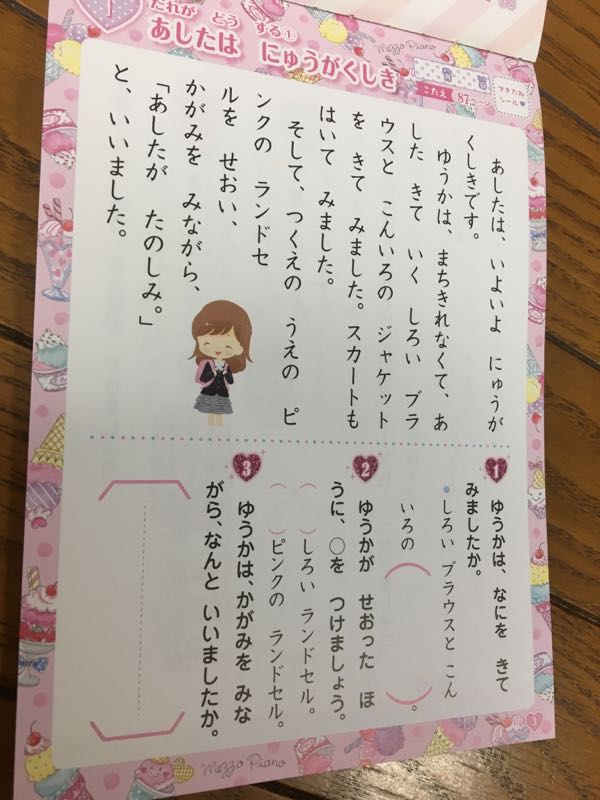 1
だれが どう する①
あしたは にゅうがくしき
Mezzo Piano
こたえ 87ページ
できたね
シール
あしたは、いよいよ にゅうが
くしきです。
ゆうかは、まちきれなくて、あ
した きて いく しろい ブラ
ウスと こんいろの ジャケット
を きて みました。スカートも
はいて みました。
そして、つくえの うえの ピ
ンクの ランドセ
ルを せおい、
かがみを みながら、
「あしたが たのしみ。」
と、いいました。
1 ゆうかは、なにを きて
みましたか。
●しろい ブラウスと こん
いろの( )。
2 ゆうかが せおった ほ
うに、○を つけましょう。
( )しろい ランドセル。
( )ピンクの ランドセル。
3 ゆうかは、かがみを みな
がら、なんと いいましたか。
Mezzo Piano
3